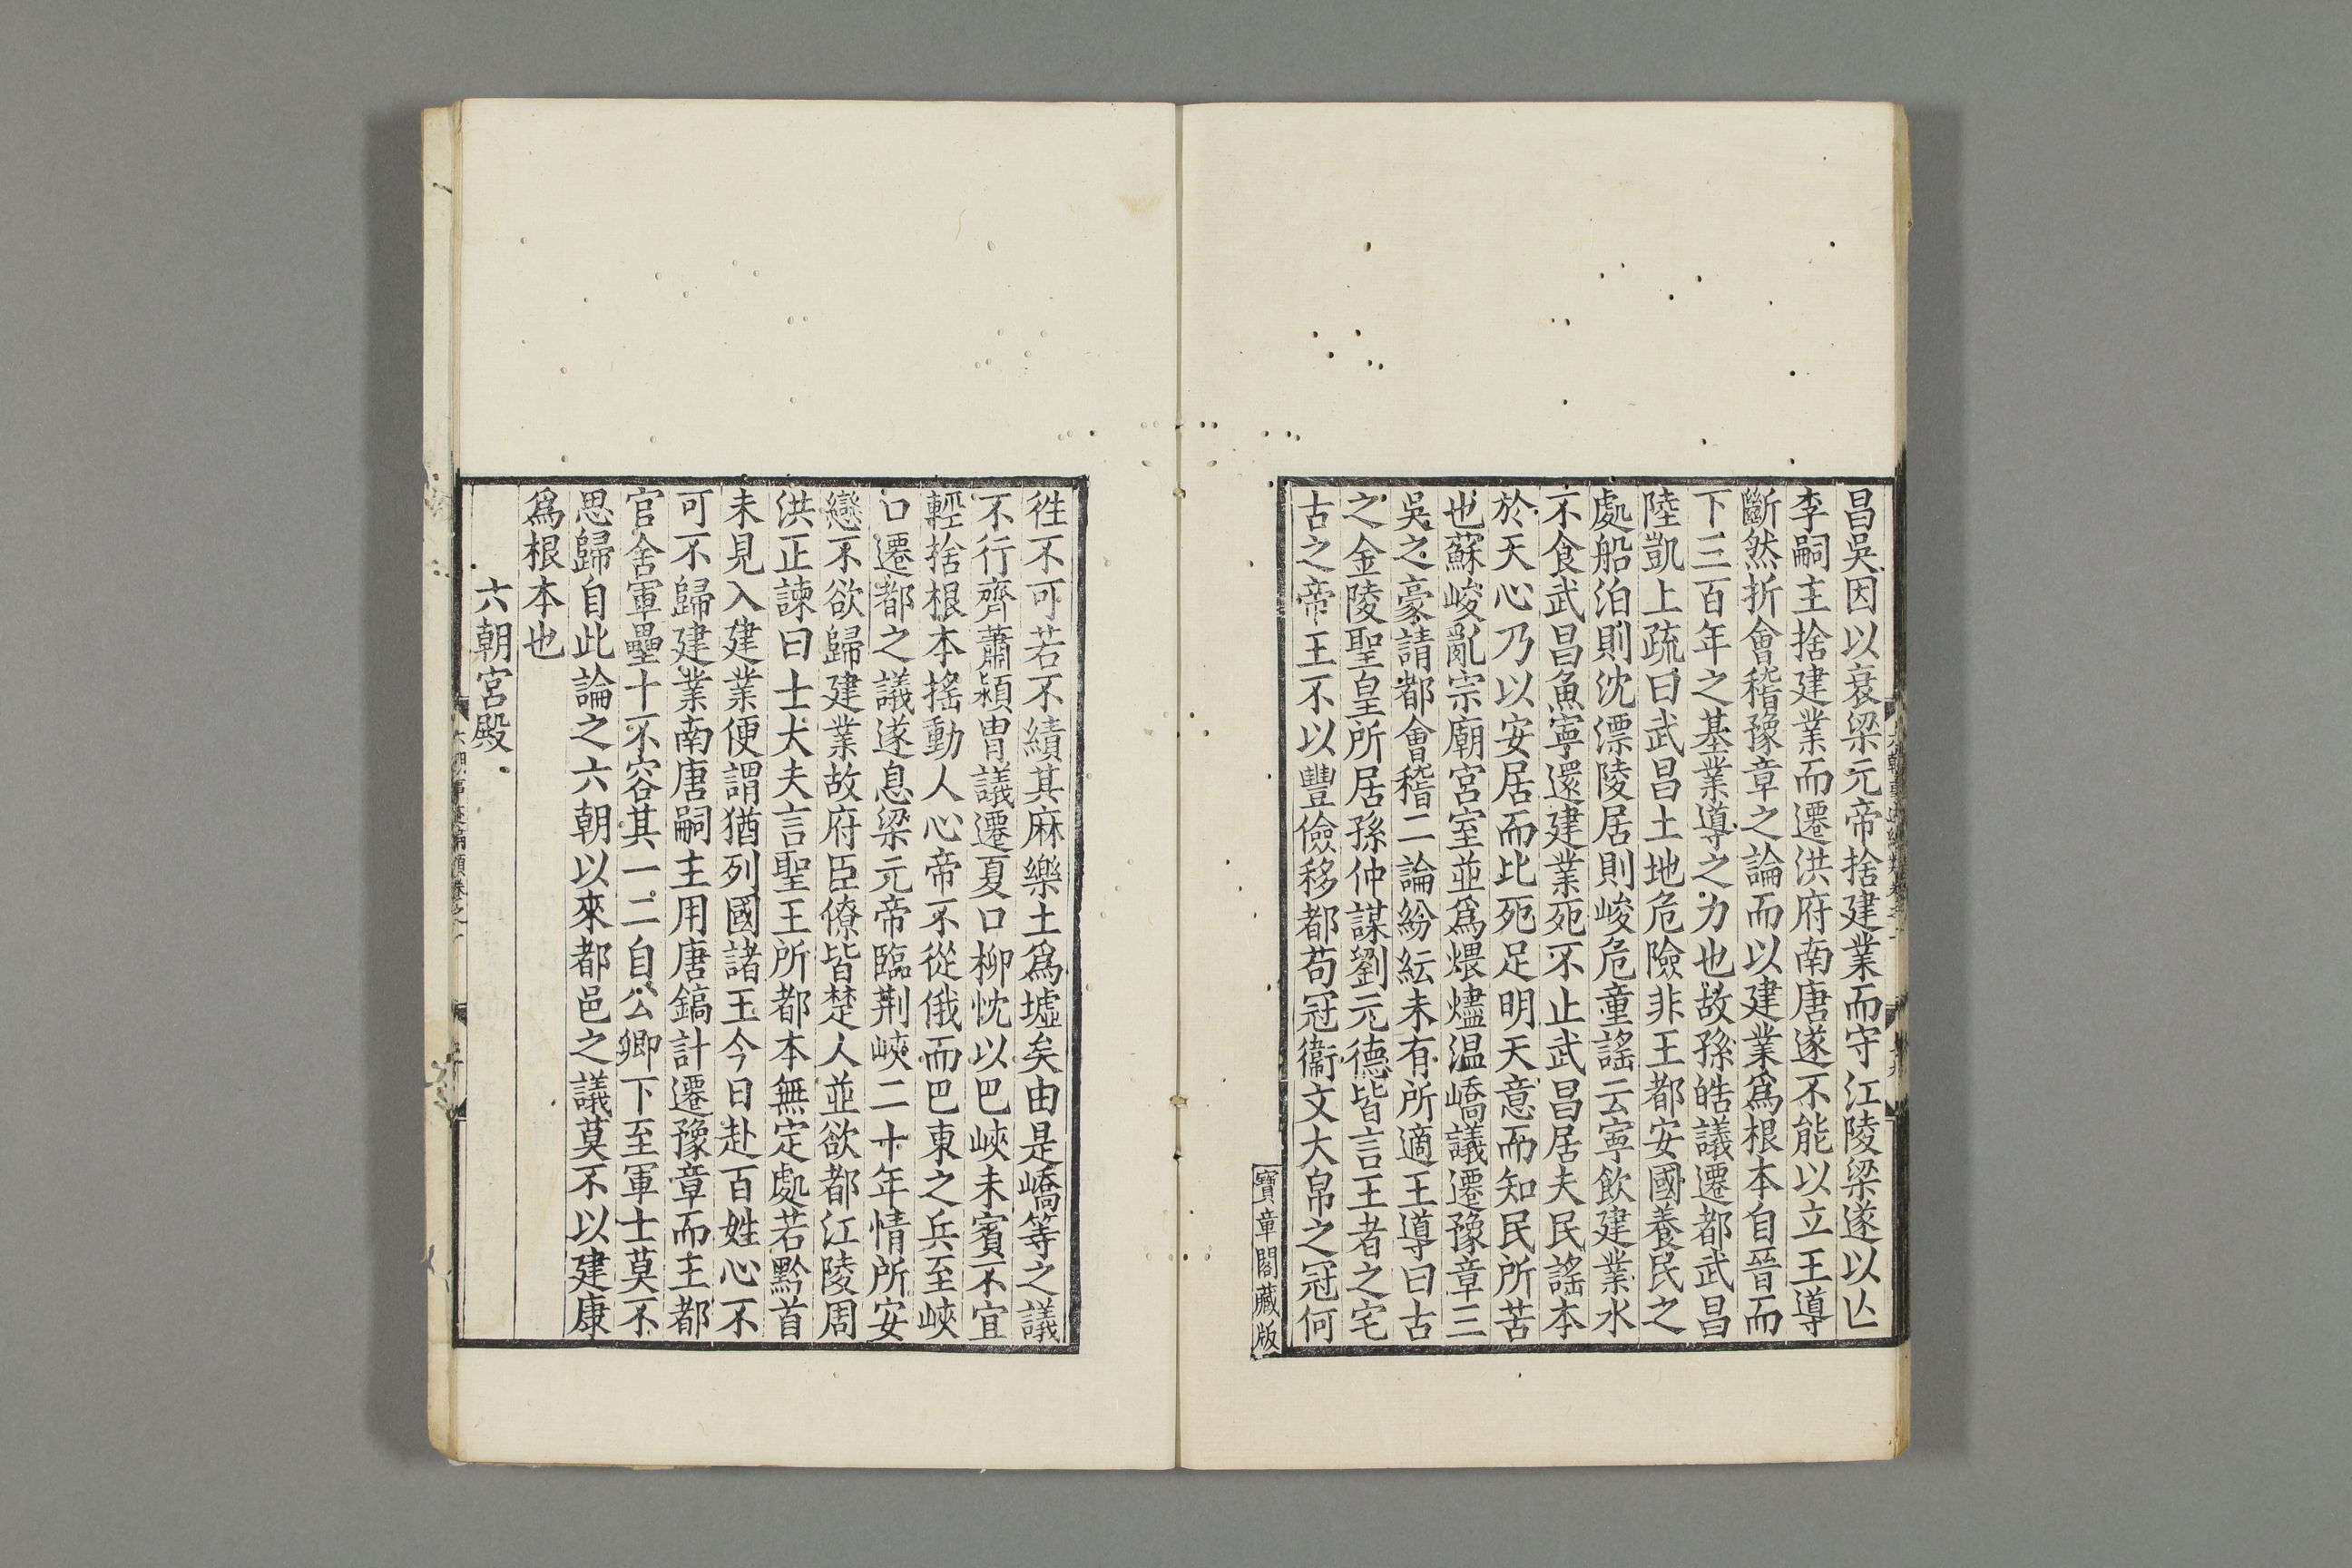 昌吳因以衰梁元帝捨建業而守江陵梁遂以亾
李嗣主捨建業而遷洪府南唐遂不能以立王導
斷然折會稽豫章之論而以建業爲根本自晉而
下三百年之基業導之力也故孫皓議遷都武昌
陸凱上疏曰武昌土地危險非王都安國養民之
處船泊則沈漂陵居則峻危童謠云寧飲建業水
不食武昌魚寧還建業死不止武昌居夫民謠本
於天心乃以安居而比死足明天意而知民所苦
也蘇峻亂宗廟宮室並爲煨燼温嶠議遷豫章三
吳之豪請都會稽二論紛紜未有所適王導曰古
之金陵聖皇所居孫仲謀劉元德皆言王者之宅
古之帝王不以豐儉移都苟冠衞文大帛之冠何
寶章閣藏版
徃不可若不績其麻樂土爲墟矣由是嶠等之議
不行齊蕭潁胄議遷夏口柳忱以巴峽未賓不宜
輕捨根本搖動人心帝不從俄而巴東之兵至峽
口遷都之議遂息梁元帝臨荆峽二十年情所安
戀不欲歸建業故府臣僚皆楚人並欲都江陵周
洪正諫曰士大夫言聖王所都本無定處若黔首
未見入建業便謂猶列國諸王今日赴百姓心不
可不歸建業南唐嗣主用唐鎬計遷豫章而王都
官舍軍壘十不容其一二自公卿下至軍士莫不
思歸自此論之六朝以來都邑之議莫不以建康
爲根本也
六朝宮殿